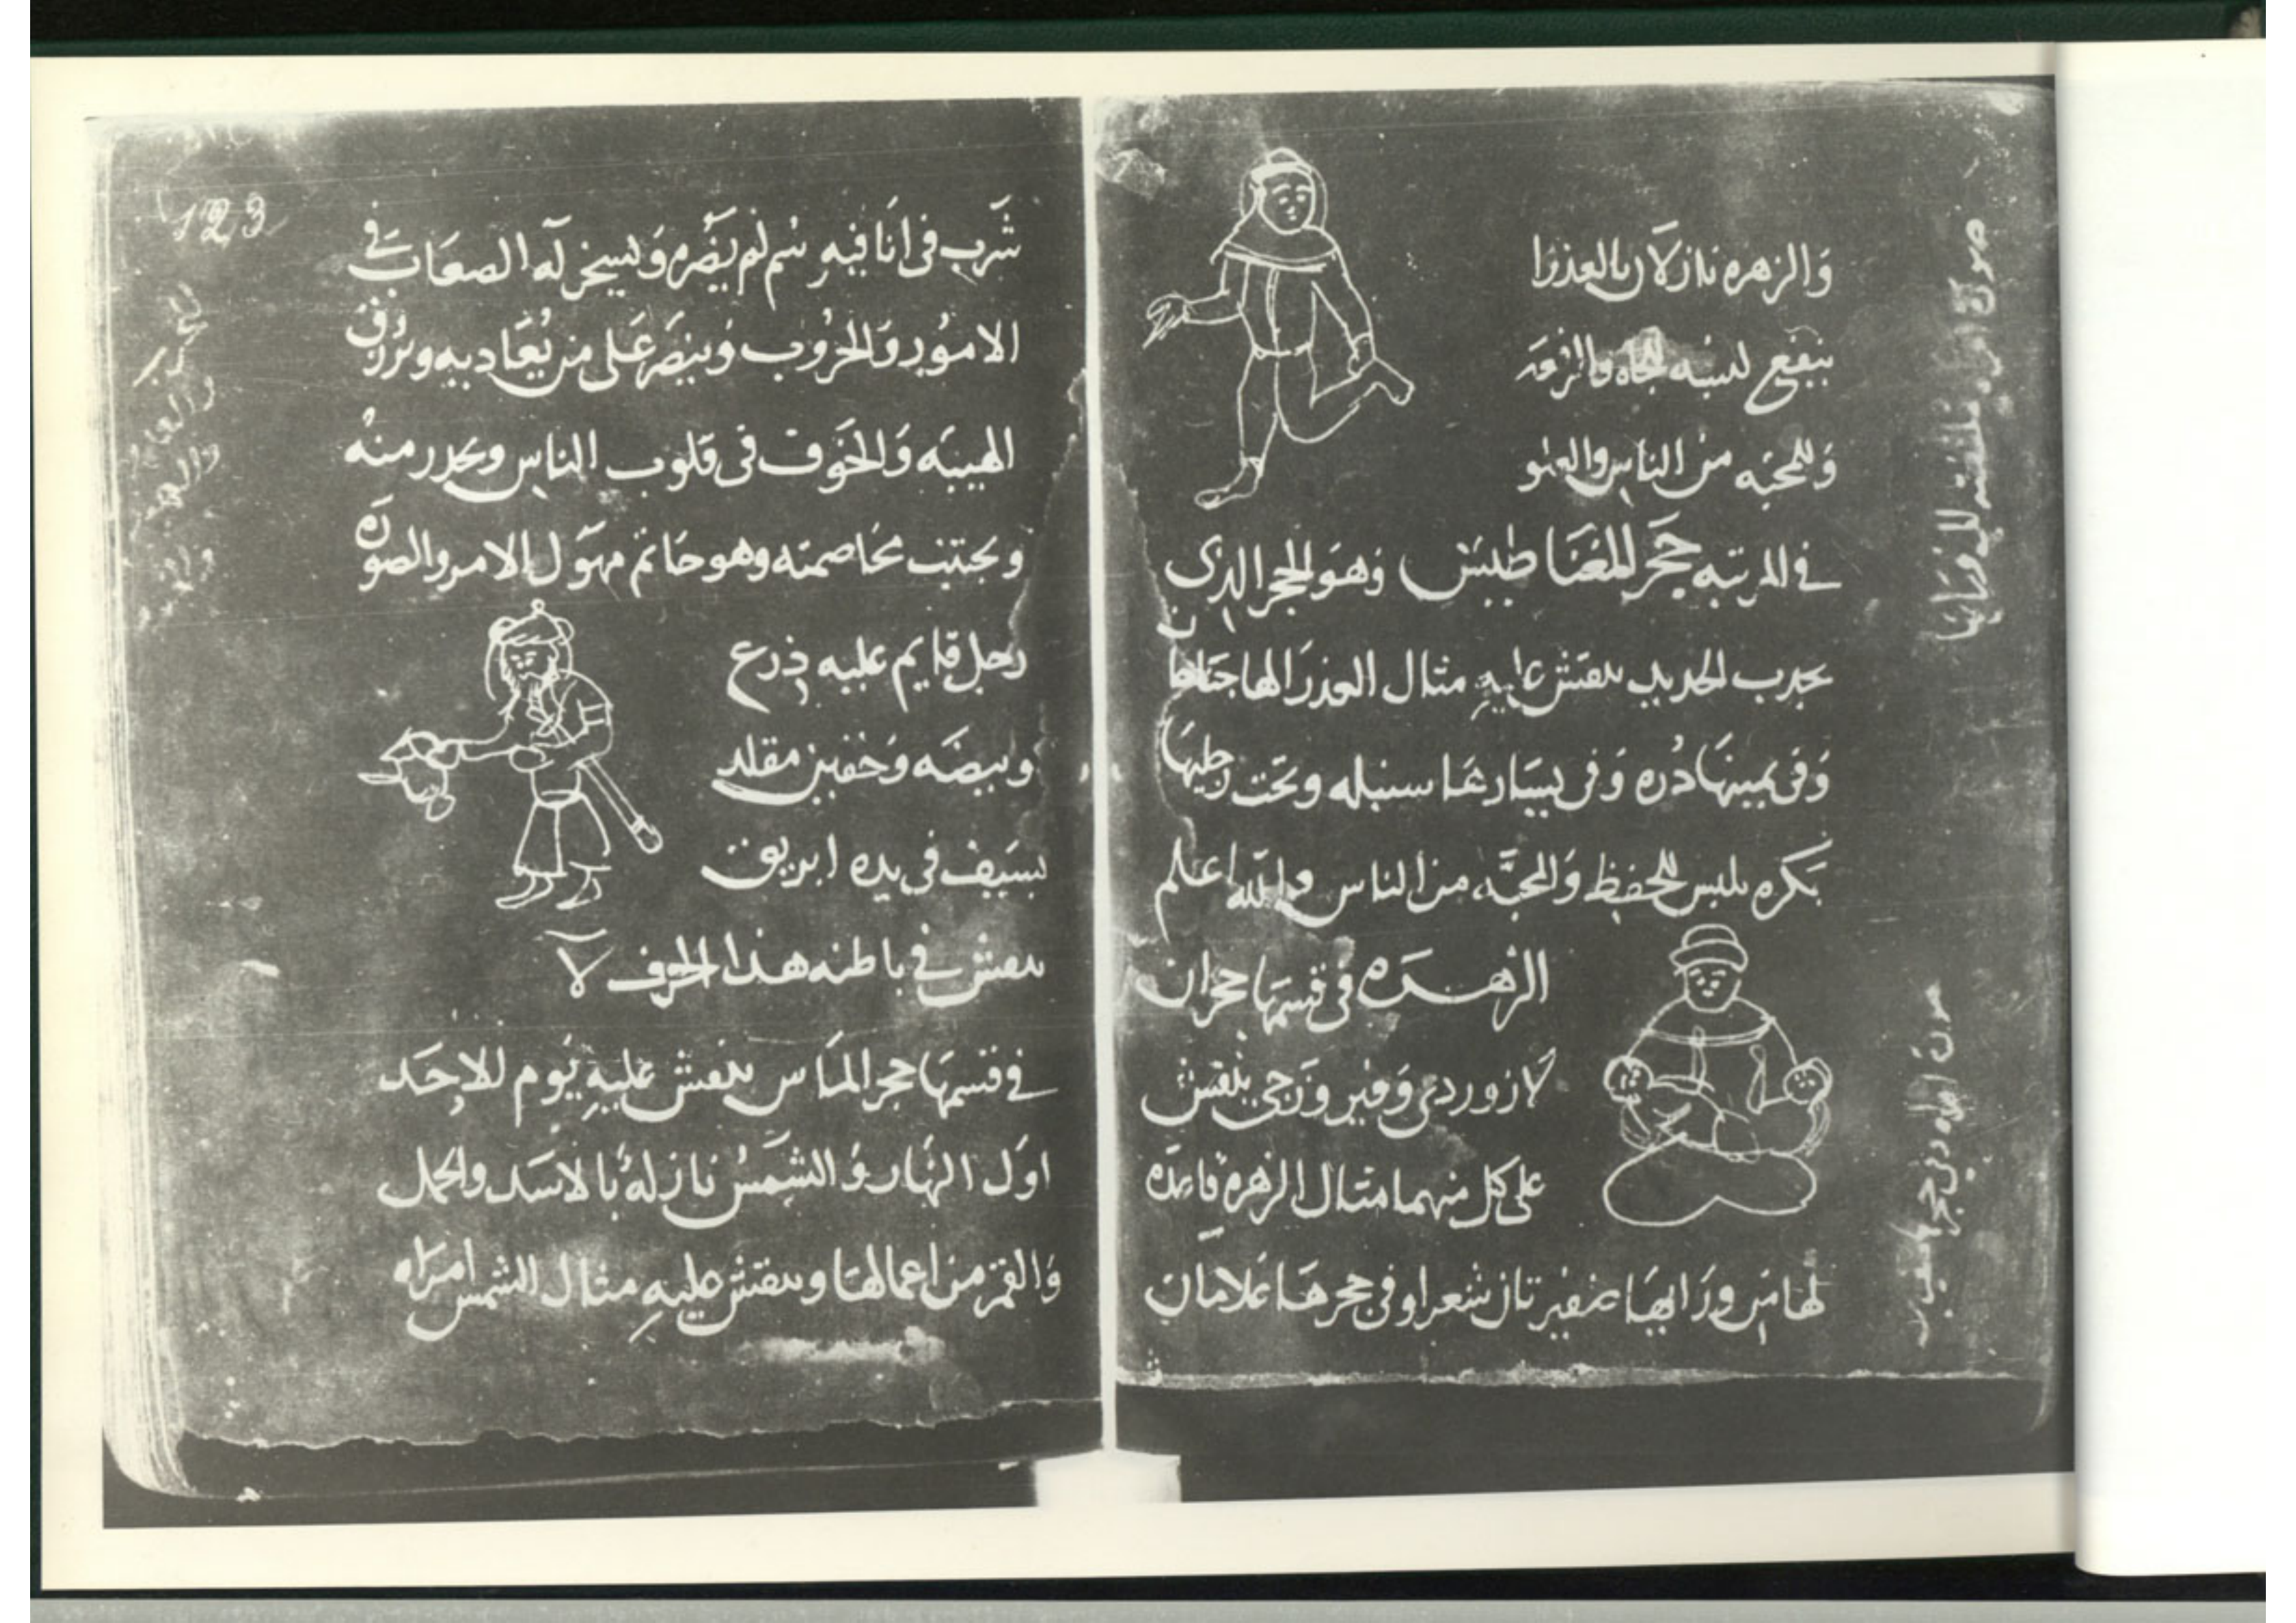 والزهره نازلان بالعذرا
ينفع لبسه للجاه والرفعه
وللمحبه من الناس والعلو
في المرتبه حجر المغناطيس وهو الحجر الذي
يجدب الحديد ينقش عليه مثال العذرا لها جناحان
وفي يمينها دره وفي يسارها سنبله وتحت رجليها
بكره يلبس للحفظ والمحبه من الناس والله اعلم
الزهره في قسمها حجران
لازوردي وفيروزجي ينقش
على كل منهما مثال الزهره قاعده
لها من ورايها شعرا وفي حجرها غلامان
صورة امراه ملتفته الى ورايها
صورة امراه وفي حجرها
123
شرب في انا فيه سم لم يضره ويسخر له الصعاب في
الامور والحروب وينصر على من يعاديه ويرزق
الهيبه والخوف في قلوب الناس ويحدر منه
ويجتنب مخاصمته وهو خاتم مهول الامر والصوره
رجل قايم عليه درع
وبيضه وخفين مقلد
بسيف في يده ابريق
ينقش في باطنه هذا الحرف لا
في قسمها حجر الماس ينقش عليه يوم الاحد
اول النهار والشمس نازله بالاسد والحمل
والقمر من اعمالها وينقش عليه مثال الشمس امراه